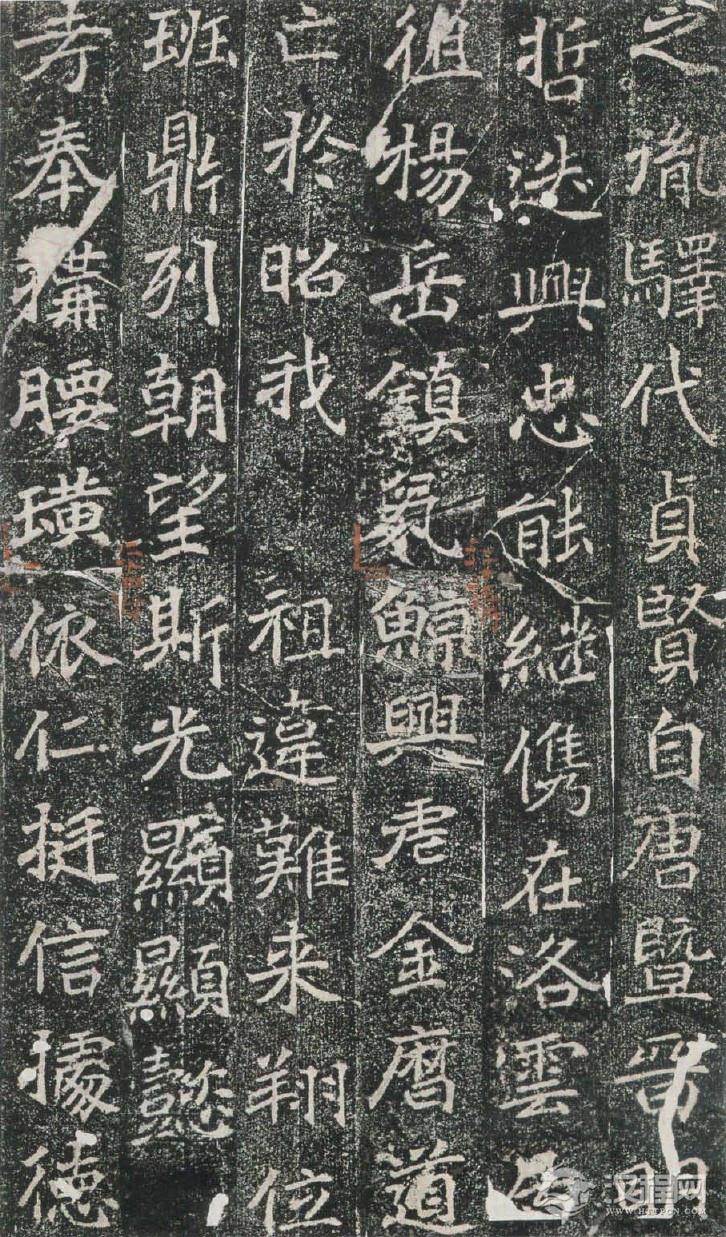 之胤驛代貞賢自唐暨晉明
哲迭興忠能継儁在洛雲
徂楊岳鎮鯨興虐金道
亡於昭我 祖違難来翔位
班鼎列朝望斯光顯顯懿
考奉構腰璜依仁挺信據德
汉程网
HTTPCN.COM